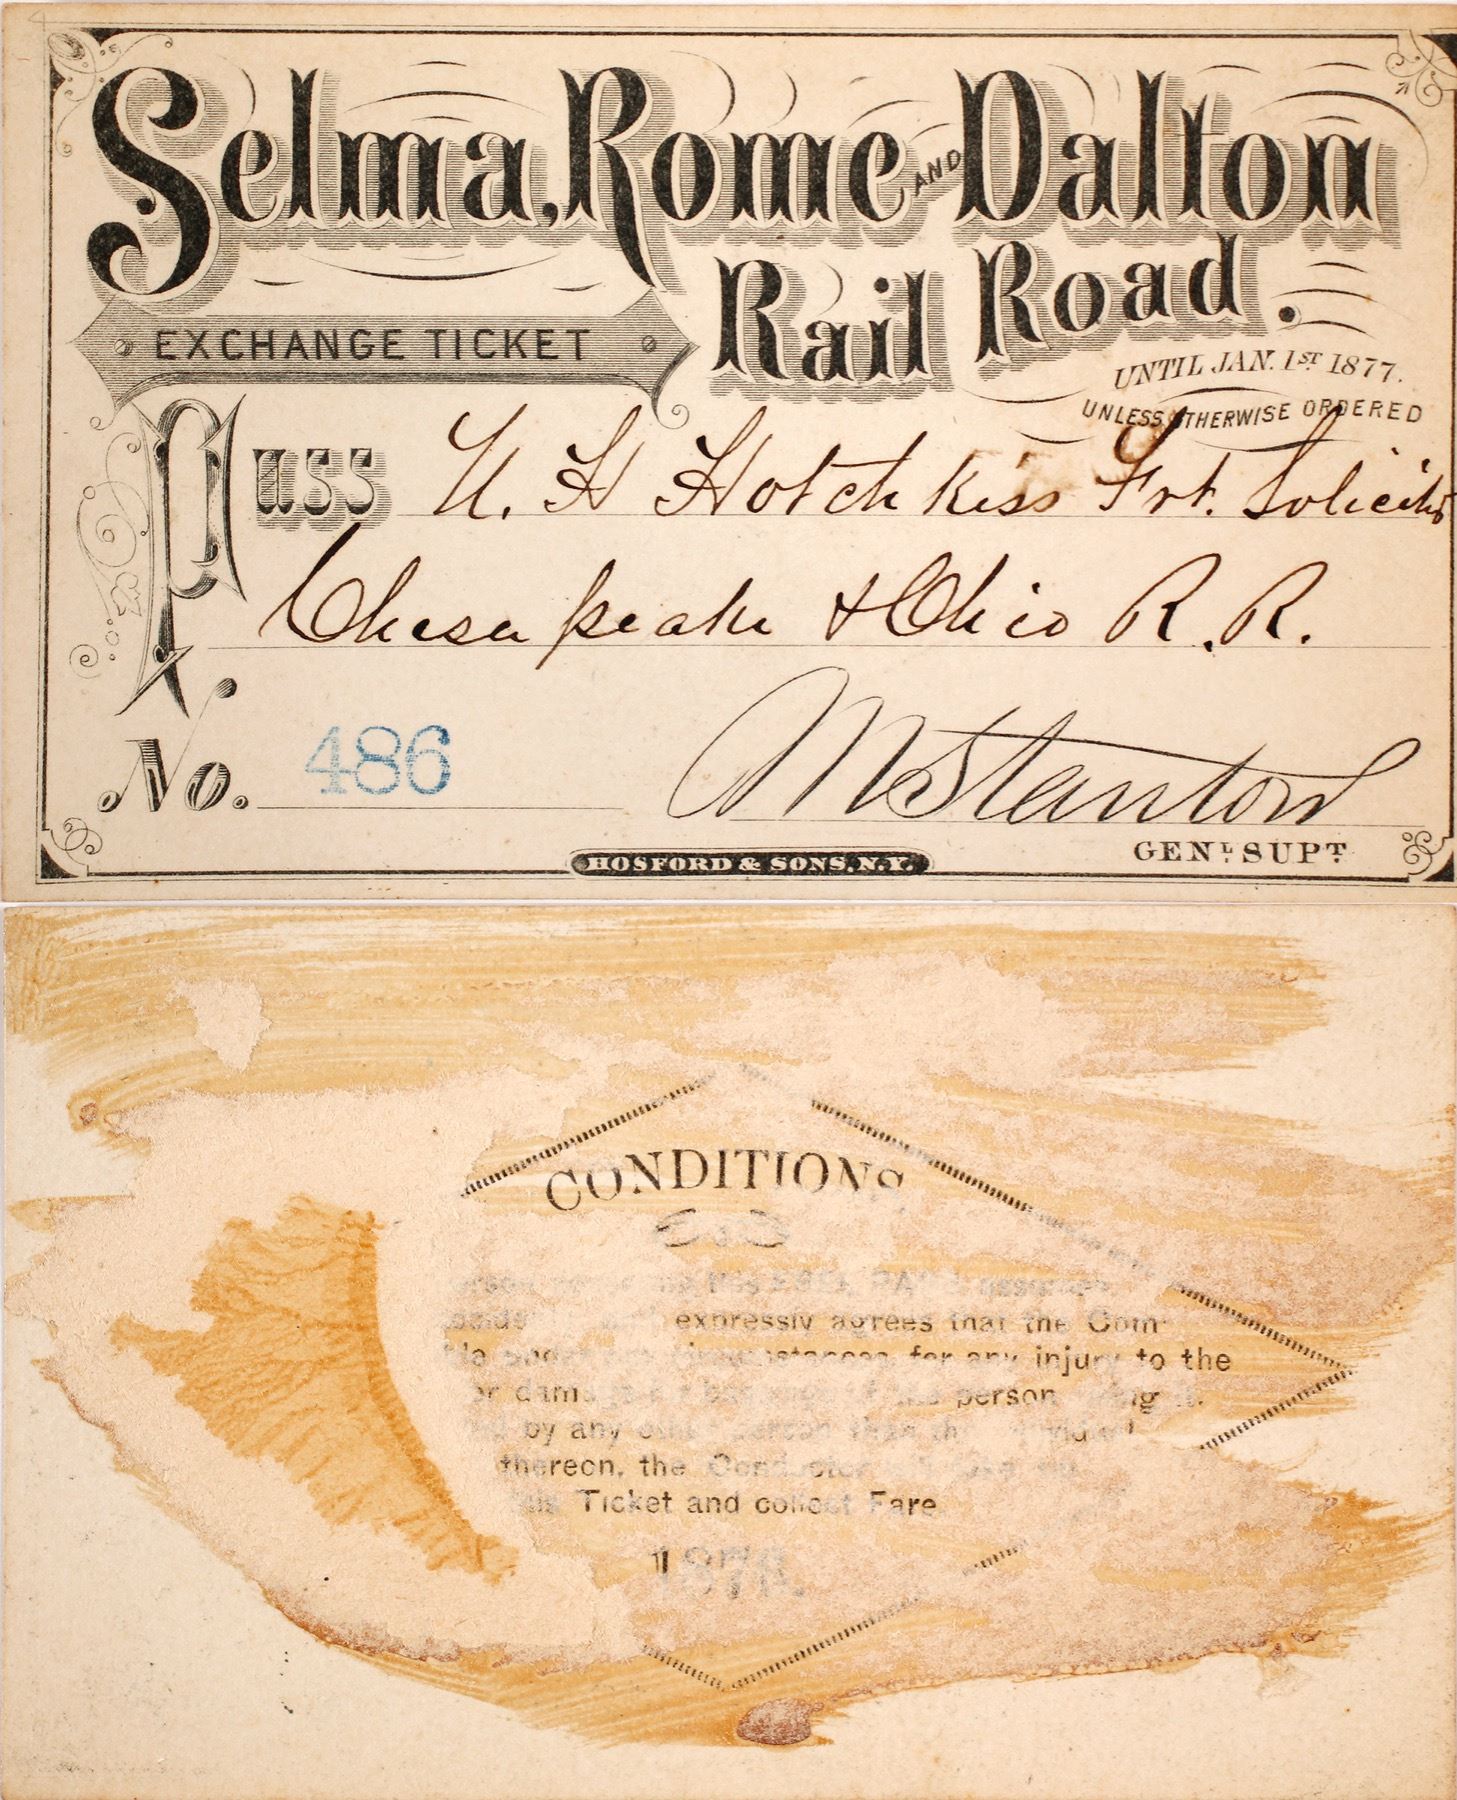 Selma, Rome AND Dalton
Rail Road.
EXCHANGE TICKET
UNTIL JAN. 1ST 1877.
UNLESS OTHERWISE ORDERED
Pass U. H Hotchkiss Frt. Solicitor
Chesapeake & Ohio R. R.
No. 486
M Stanton
GENL SUPT
HOSFORD & SONS, N.Y.
CONDITIONS
expressly agrees that the Com
for any injury to the
or person
by any person than
thereon, the Conductor
this Ticket and collect Fare.
1876.